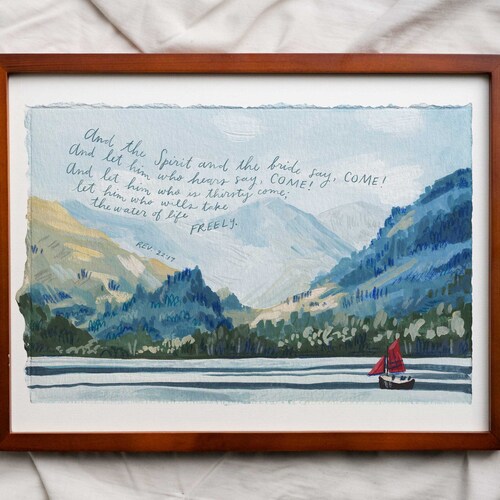 And the Spirit and the bride say, COME!
And let him who hears say, COME!
And let him who is thirsty come;
let him who wills take
the water of life
FREELY.
REV. 22:17